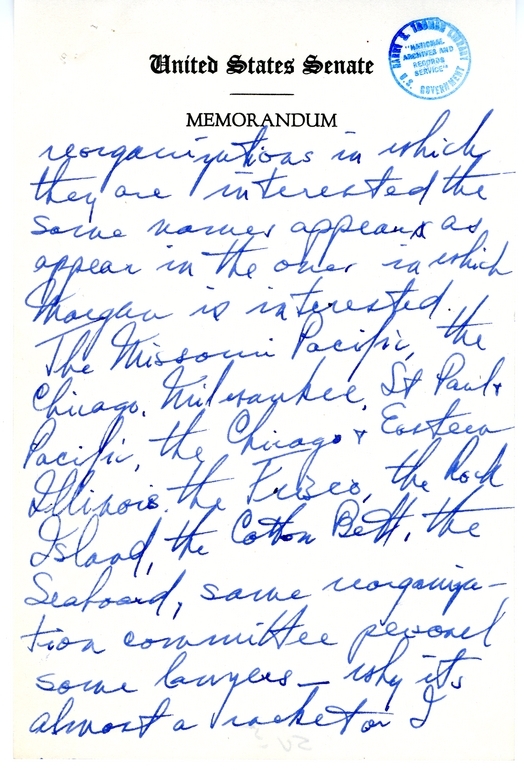 United States Senate
HARRY S. TRUMAN LIBRARY
"NATIONAL
ARCHIVES AND
RECORDS
SERVICE"
U.S. GOVERNMENT
MEMORANDUM
reorganizations in which
they are interested the
same names appear as
appear in the ones in which
Morgan is interested.
The Missouri Pacific, the
Chicago, Milwaukee, St Paul &
Pacific, the Chicago & Eastern
Illinois, the Frisco, the Rock
Island, the Cotton Belt, the
Seaboard, same reorganiza-
tion committee personel
same lawyers — why its
almost a racket or I